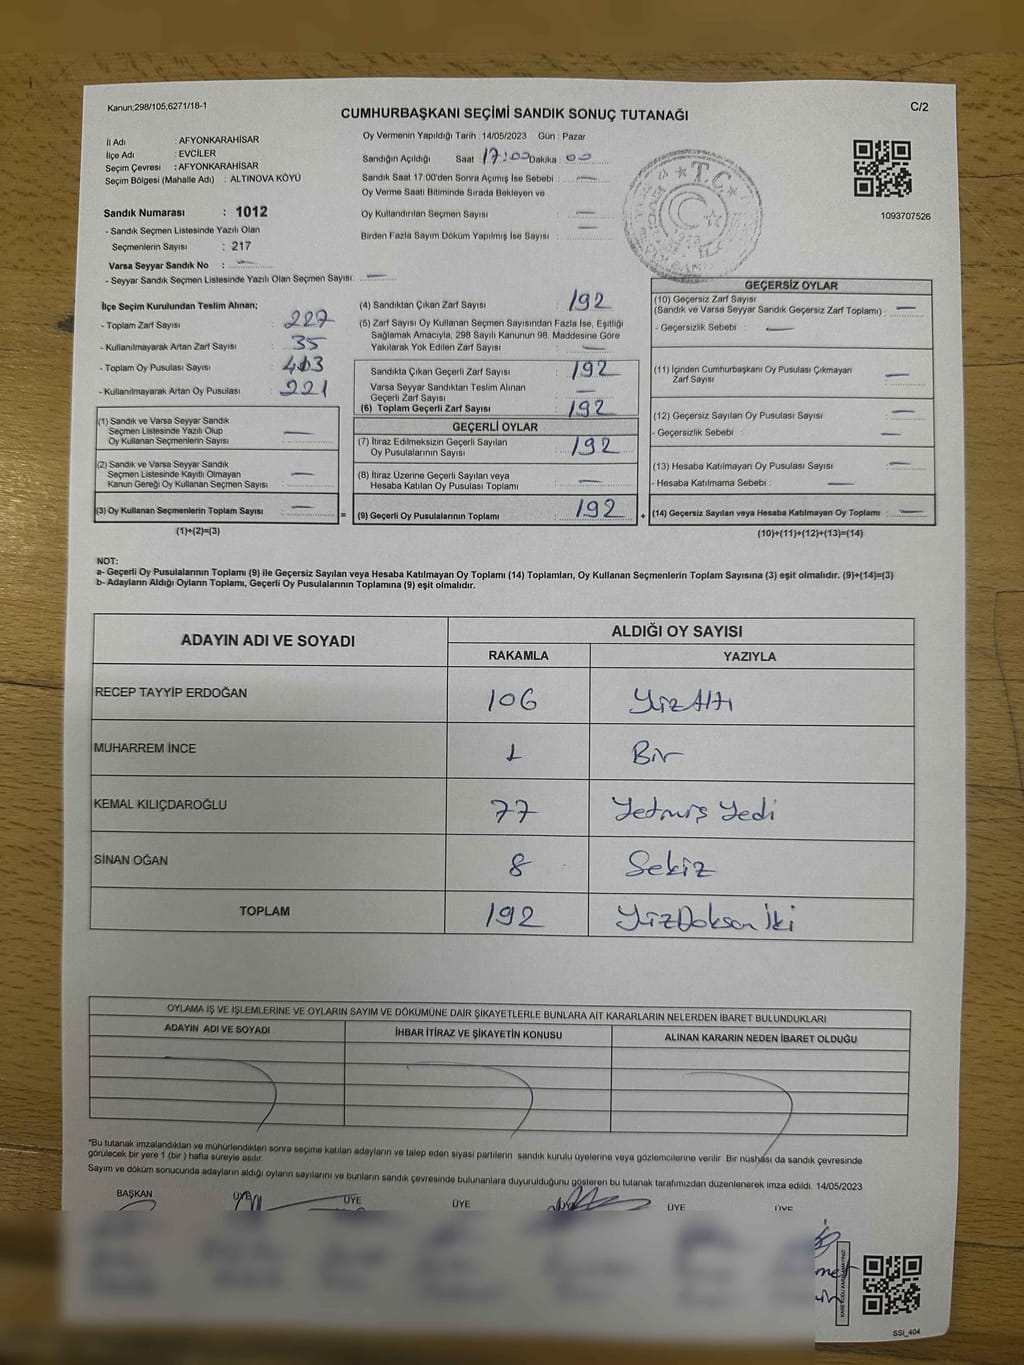 Kanun;298/105,6271/18-1
C/2
CUMHURBAŞKANI SEÇİMİ SANDIK SONUÇ TUTANAĞI
İl Adı : AFYONKARAHİSAR
İlçe Adı : EVCİLER
Seçim Çevresi : AFYONKARAHİSAR
Seçim Bölgesi (Mahalle Adı) : ALTINOVA KÖYÜ
Oy Vermenin Yapıldığı Tarih : 14/05/2023 Gün : Pazar
Sandığın Açıldığı Saat 17:00 Dakika : 00
Sandık Saat 17:00'den Sonra Açımış İse Sebebi : —
Oy Verme Saati Bitiminde Sırada Bekleyen ve
Oy Kullandırılan Seçmen Sayısı : —
Birden Fazla Sayım Döküm Yapılmış İse Sayısı : —
T.C.
1093707526
Sandık Numarası : 1012
- Sandık Seçmen Listesinde Yazılı Olan
Seçmenlerin Sayısı : 217
Varsa Seyyar Sandık No : —
- Seyyar Sandık Seçmen Listesinde Yazılı Olan Seçmen Sayısı: —
İlçe Seçim Kurulundan Teslim Alınan;
- Toplam Zarf Sayısı : 227
- Kullanılmayarak Artan Zarf Sayısı : 35
- Toplam Oy Pusulası Sayısı : 413
- Kullanılmayarak Artan Oy Pusulası : 221
(1) Sandık ve Varsa Seyyar Sandık
Seçmen Listesinde Yazılı Olup
Oy Kullanan Seçmenlerin Sayısı : —
(2) Sandık ve Varsa Seyyar Sandık
Seçmen Listesinde Kayıtlı Olmayan
Kanun Gereği Oy Kullanan Seçmen Sayısı : —
(3) Oy Kullanan Seçmenlerin Toplam Sayısı : —
(1)+(2)=(3)
=
(4) Sandıktan Çıkan Zarf Sayısı : 192
(5) Zarf Sayısı Oy Kullanan Seçmen Sayısından Fazla İse, Eşitliği
Sağlamak Amacıyla, 298 Sayılı Kanunun 98. Maddesine Göre
Yakılarak Yok Edilen Zarf Sayısı : —
Sandıkta Çıkan Geçerli Zarf Sayısı : 192
Varsa Seyyar Sandıktan Teslim Alınan
Geçerli Zarf Sayısı : —
(6) Toplam Geçerli Zarf Sayısı : 192
GEÇERLİ OYLAR
(7) İtiraz Edilmeksizin Geçerli Sayılan
Oy Pusulalarının Sayısı : 192
(8) İtiraz Üzerine Geçerli Sayılan veya
Hesaba Katılan Oy Pusulası Toplamı : —
(9) Geçerli Oy Pusulalarının Toplamı : 192
+
GEÇERSİZ OYLAR
(10) Geçersiz Zarf Sayısı
(Sandık ve Varsa Seyyar Sandık Geçersiz Zarf Toplamı) : —
- Geçersizlik Sebebi : —
(11) İçinden Cumhurbaşkanı Oy Pusulası Çıkmayan
Zarf Sayısı : —
(12) Geçersiz Sayılan Oy Pusulası Sayısı : —
- Geçersizlik Sebebi : —
(13) Hesaba Katılmayan Oy Pusulası Sayısı : —
- Hesaba Katılmama Sebebi : —
(14) Geçersiz Sayılan veya Hesaba Katılmayan Oy Toplamı : —
(10)+(11)+(12)+(13)=(14)
NOT:
a- Geçerli Oy Pusulalarının Toplamı (9) ile Geçersiz Sayılan veya Hesaba Katılmayan Oy Toplamı (14) Toplamları, Oy Kullanan Seçmenlerin Toplam Sayısına (3) eşit olmalıdır. (9)+(14)=(3)
b- Adayların Aldığı Oyların Toplamı, Geçerli Oy Pusulalarının Toplamına (9) eşit olmalıdır.
ADAYIN ADI VE SOYADI
ALDIĞI OY SAYISI
RAKAMLA YAZIYLA
RECEP TAYYİP ERDOĞAN 106 Yüz Altı
MUHARREM İNCE 1 Bir
KEMAL KILIÇDAROĞLU 77 Yetmiş Yedi
SİNAN OĞAN 8 Sekiz
TOPLAM 192 Yüz Doksan İki
OYLAMA İŞ VE İŞLEMLERİNE VE OYLARIN SAYIM VE DÖKÜMÜNE DAİR ŞİKAYETLERLE BUNLARA AİT KARARLARIN NELERDEN İBARET BULUNDUKLARI
ADAYIN ADI VE SOYADI İHBAR İTİRAZ VE ŞİKAYETİN KONUSU ALINAN KARARIN NEDEN İBARET OLDUĞU
*Bu tutanak imzalandıktan ve mühürlendikten sonra seçime katılan adayların ve talep eden siyasi partilerin sandık kurulu üyelerine veya gözlemcilerine verilir. Bir nüshası da sandık çevresinde
görülecek bir yere 1 (bir) hafta süreyle asılır.
Sayım ve döküm sonucunda adayların aldığı oyların sayılarını ve bunların sandık çevresinde bulunanlara duyurulduğunu gösteren bu tutanak tarafımızdan düzenlenerek imza edildi. 14/05/2023
BAŞKAN ÜYE ÜYE ÜYE ÜYE ÜYE
SSI_404